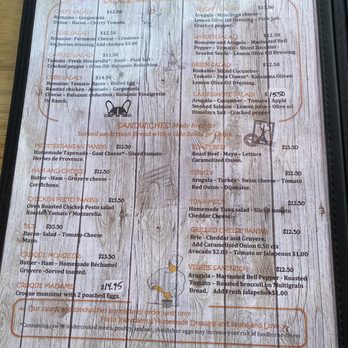 $12.50
Romaine - Gorgonzola
Bacon - Cherry Tomato.
$12.50
Romaine - Parmesan Cheese - Croutons
Anchovies dressing. Add chicken $3.00
$11.50
Tomato - Fresh Mozzarella* - Basil - Pink Salt -
Cracked pepper - Olive Oil - Balsamic Reduction.
COBB SALAD
Romaine - Tomato - Bacon - Boiled Egg -
Roasted chicken - Avocado - Gorgonzola
Cheese - Balsamic reduction - Balsamic Vinaigrette
Or Ranch.
$12.50
Arugula -
Lemon Olive Oil Dressing - Pink Salt -
Cracked pepper.
$12.50
Romaine and Arugula - Marinated Bell
Pepper - Tomato - Sliced Zucchini -
Sesame Seeds - Lemon Olive Oil Dressing.
GREEK SALAD $12.50
Romaine - Sliced Cucumber
Tomato - Feta Cheese* - Kalamata Olives-
Lemon Olive Oil Dressing.
$15.50
Arugula - Cucumber - Tomato - Apple
Smoked Salmon - Lemon juice - Olive oil
Himalaya Salt - Cracked pepper.
SANDWICHES
Served on Artisan Bread with a side Salad or Chips.
MEDITERRANEAN PANINI $12.50
Homemade Tapenade - Goat Cheese* - Sliced tomato -
Herbes de Provence.
HAM AND CHEESE $12.50
Butter - Ham - Gruyere cheese -
Cornichons.
CHICKEN PESTO PANINI $13.50
Oven Roasted Chicken Pesto salad
Roasted Tomato / Mozzarella.
$12.50
Bacon - Salad - Tomato - Cheese
Mayo.
CROQUE MONSIEUR $13.50
Butter - Ham - Homemade Béchamel
Gruyere - Served toasted.
CROQUE MADAME $14.95
Croque monsieur with 2 poached Eggs.
$13.50
Roast Beef - Mayo - Lettuce
Caramelized Onion.
TURKEY $12.50
Arugula - Turkey - Swiss cheese - Tomato
Red Onion - Dijonaise.
TUNA MELT $12.50
Homemade Tuna salad - Sliced tomato
Cheddar Cheese
GRILLED CHEESE PANINI $12.50
Brie - Cheddar and Gruyere.
Add Caramelized Onion 0.50 cts
Avocado $2.00 or Tomato or Jalapenos $1.00
VEGGIE SANDWICH $12.50
Arugula - Marinated Bell Pepper - Roasted
Tomato - Roasted broccoli on Multigrain
Bread. Add Fresh Jalapenos $1.00
All Our salads and sandwiches are made to order with only
Fresh Ingredients, Homemade Dressing and sauce and Love
*Consuming raw or undercooked meats, poultry, seafood, shellfish or eggs may increase your risk of foodborne illness